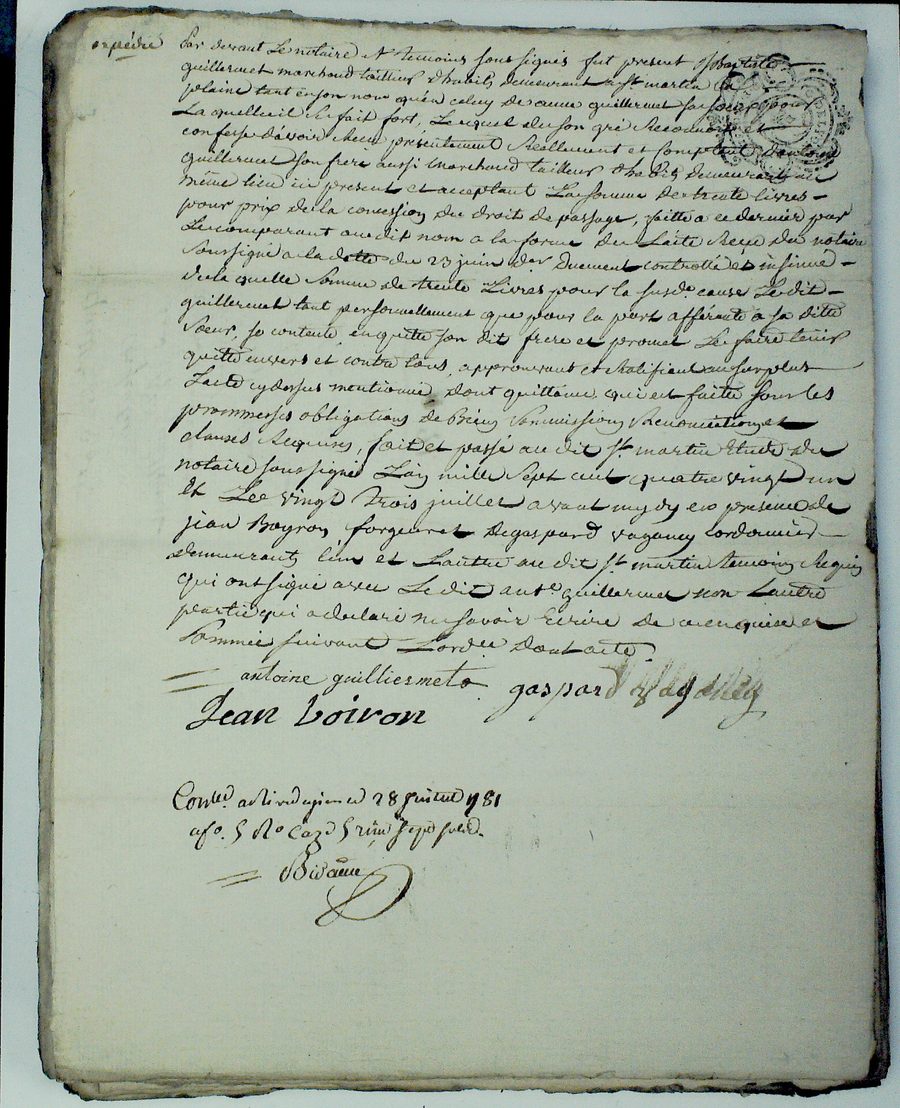 expédié
Par devant Le notaire & temoins sous signés fut present Jn Baptiste
guillermet marchand tailleur d'habits demeurant a St martin la
plaine tant en son nom qu'en celuy de anne guillermet sa soeur pour
Laquelle il se fait fort, Lequel de son gré Reconnoit et
confesse d'avoir Reçu présentement Réellement et comptant d'antoine
guillermet son frere aussi marchand tailleur d'habits demeurant au
même lieu ici present et acceptant La somme de trente livres
pour prix de la concession du droit de passage, faitte a ce dernier par
Le comparant audit nom a la forme de L'acte Reçu du notaire
soussigné a la datte du 23 juin der duement controllé et insinué
de la quelle somme de trente Livres pour la susde cause Le dit
guillermet tant personnellement que pour la part afferante a sa ditte
Sœur, se contente, en quitte son dit frere et promet Le faire tenir
quitte envers et contre tous, approuvant et Ratifiant au surplus
L'acte cy dessus mentionné dont quittance qui est faitte sous les
prommesses obligations de Biens Soumissions Renonciations et
clauses Requises, fait et passé au dit St martin Etude du
notaire soussigné L'an mille sept cent quatre vingt un
et Le vingt trois juillet avant mydy en presence de
jean Boyron forgeur et de gaspard vaganey cordonnier
demeurants L'un et L'autre au dit St martin temoins Requis
qui ont signé avec Le dit ante guillermet non L'autre
partie qui a declaré ne savoir Ecrire de ce enquise et
Sommée suivant L'ordce Dont acte
antoine guilliermeto gaspard
Jean boiron
Conlé a rivedegier ce 28 juillet 1781
afo. 5 Ro Caze 5 reçu sept sols.